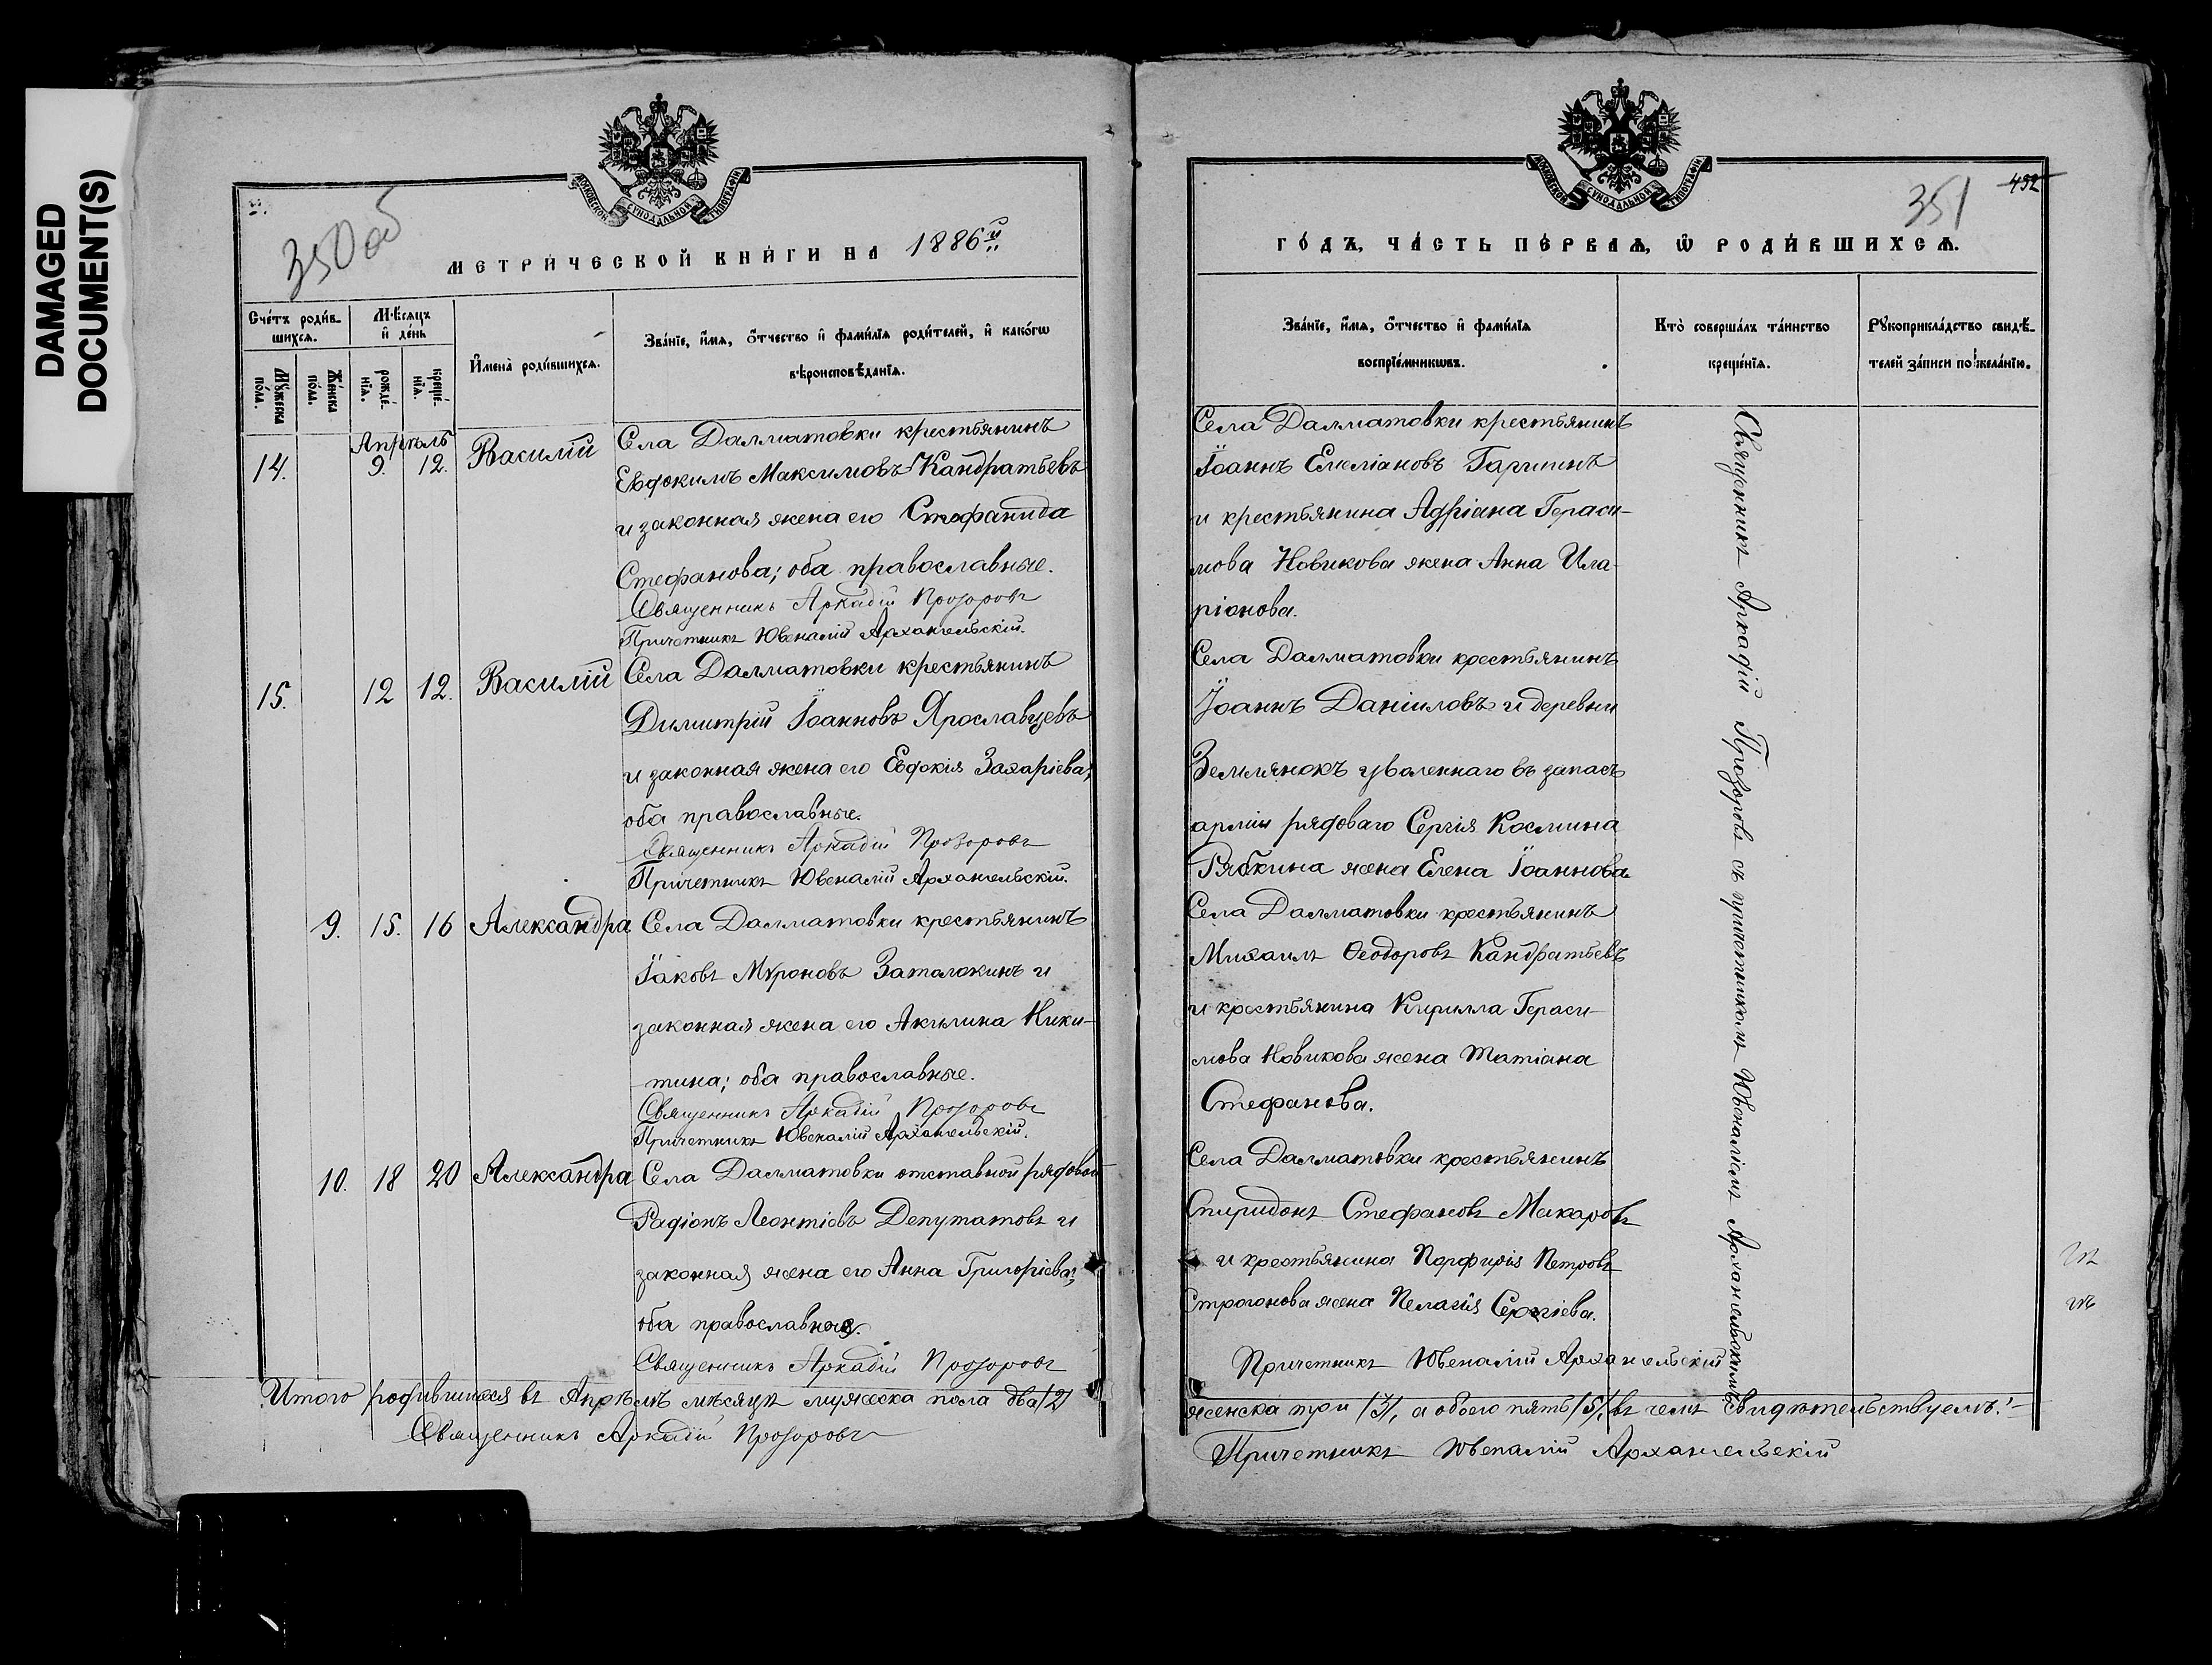 DAMAGED
DOCUMENT(S)
МОСКОВСКОЙ СѴНОДАЛЬНОЙ ТИПОГРАФІИ
350 об
МЕТРИ́ЧЕСКОЙ КНИ́ГИ НА 1886й
Сче́тъ роди́в-
шихсѧ.
Мꙋ́жеска
по́ла.
Же́нска
по́ла.
Мѣ́сѧцъ
и҆ де́нь
рожде́-
нїѧ.
креще́-
нїѧ.
И҆мена̀ роди́вшихсѧ.
Зва́нїе, и҆́мѧ, ѻ҆́тчество и҆ фами́лїѧ роди́телей, и҆ како́гѡ
вѣроисповѣ́данїѧ.
Апрѣль
14. 9. 12. Василій
Села Далматовки крестьянинъ
Евдокимъ Максимовъ Кандратьевъ
и законная жена его Стефанида
Стефанова; оба православные.
Священникъ Аркадій Прозоровъ
Причетникъ Ювеналій Архангельскій.
15. 12 12. Василій
Села Далматовки крестьянинъ
Димитрій Іоанновъ Ярославцевъ
и законная жена его Евдокія Захаріева;
оба православные.
Священникъ Аркадій Прозоровъ
Причетникъ Ювеналій Архангельскій.
9. 15. 16 Александра
Села Далматовки крестьянинъ
Іаковъ Мѵроновъ Заталокинъ и
законная жена его Акилина Ники-
тина; оба православные.
Священникъ Аркадій Прозоровъ
Причетникъ Ювеналій Архангельскій.
10. 18 20 Александра
Села Далматовки отставной рядовой
Радіонъ Леонтіевъ Депутатовъ и
законная жена его Анна Григоріева;
оба православные.
Священникъ Аркадій Прозоровъ
Итого родившихся въ Апрѣлѣ мѣсяцѣ мужеска пола два /2/
Священникъ Аркадій Прозоровъ
МОСКОВСКОЙ СѴНОДАЛЬНОЙ ТИПОГРАФІИ
351
492
ГО́ДЪ, ЧА́СТЬ ПЕ́РВАѦ, Ѡ҆ РОДИ́ВШИХСѦ.
Зва́нїе, и҆́мѧ, ѻ҆́тчество и҆ фами́лїѧ
воспрїе́мникѡвъ.
Кто̀ соверша́лъ та́инство
креще́нїѧ.
Рꙋкоприкла́дство свидѣ́-
телей за́писи по жела́нїю.
Села Далматовки крестьянинъ
Іоаннъ Емеліановъ Гаршинъ
и крестьянина Адріана Гераси-
мова Новикова жена Анна Ила-
ріонова.
Села Далматовки крестьянинъ
Іоаннъ Даніиловъ и деревни
Землянокъ уволеннаго въ запасъ
арміи рядоваго Сергія Космина
Рябкина жена Елена Іоаннова
Села Далматовки крестьянинъ
Михаилъ Ѳеодоровъ Кандратьевъ
и крестьянина Кирилла Гераси-
мова Новикова жена Татіана
Стефанова.
Села Далматовки крестьянинъ
Спиридонъ Стефановъ Макаровъ
и крестьянина Порфирія Петровъ
Строгонова жена Пелагія Сергіева.
Причетникъ Ювеналій Архангельскій
Священникъ Аркадій Прозоровъ съ причетникомъ Ювеналіемъ Архангельскимъ
женска три /3/, а обоего пять /5/, въ чемъ свидѣтельствуемъ:
Причетникъ Ювеналій Архангельскій